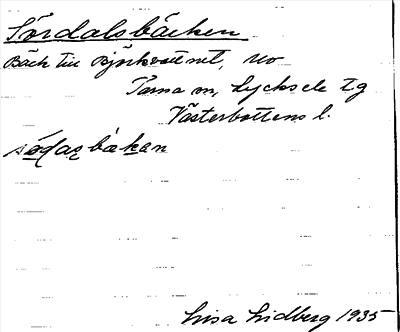 Sördalsbäcken
Bäck till Björkvattnet, no
Tärna sn, Lycksele tg
Västerbottens l.
södasbäkan
Lisa Lidberg 1935